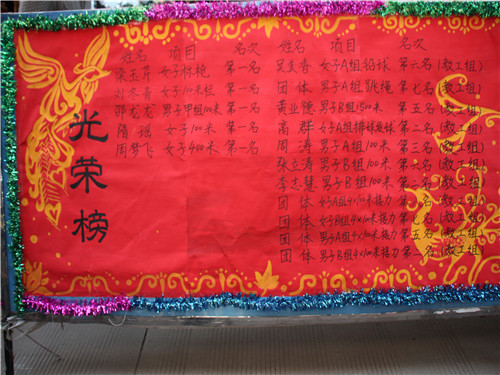 光荣榜
姓名 项目 名次
梁玉芹 女子标枪 第一名
刘冬青 女子100米栏 第一名
邵龙龙 男子甲组100米 第一名
隋瑶 女子100米 第一名
周梦飞 女子400米 第一名
姓名 项目 名次
吴美香 女子A组铅球 第六名(教工组)
团体 男子A组跳绳 第七名(教工组)
黄业德 男子B组1500米 第五名(教工组)
高群 女子A组排球发球 第二名(教工组)
周涛 男子A组100米 第三名(教工组)
张立涛 男子B组100米 第六名(教工组)
李志慧 男子B组100米 第二名(教工组)
团体 女子A组4×100米接力 第一名(教工组)
团体 女子B组4×100米接力 第七名(教工组)
团体 男子A组4×100米接力 第五名(教工组)
团体 男子B组4×100米接力 第二名(教工组)